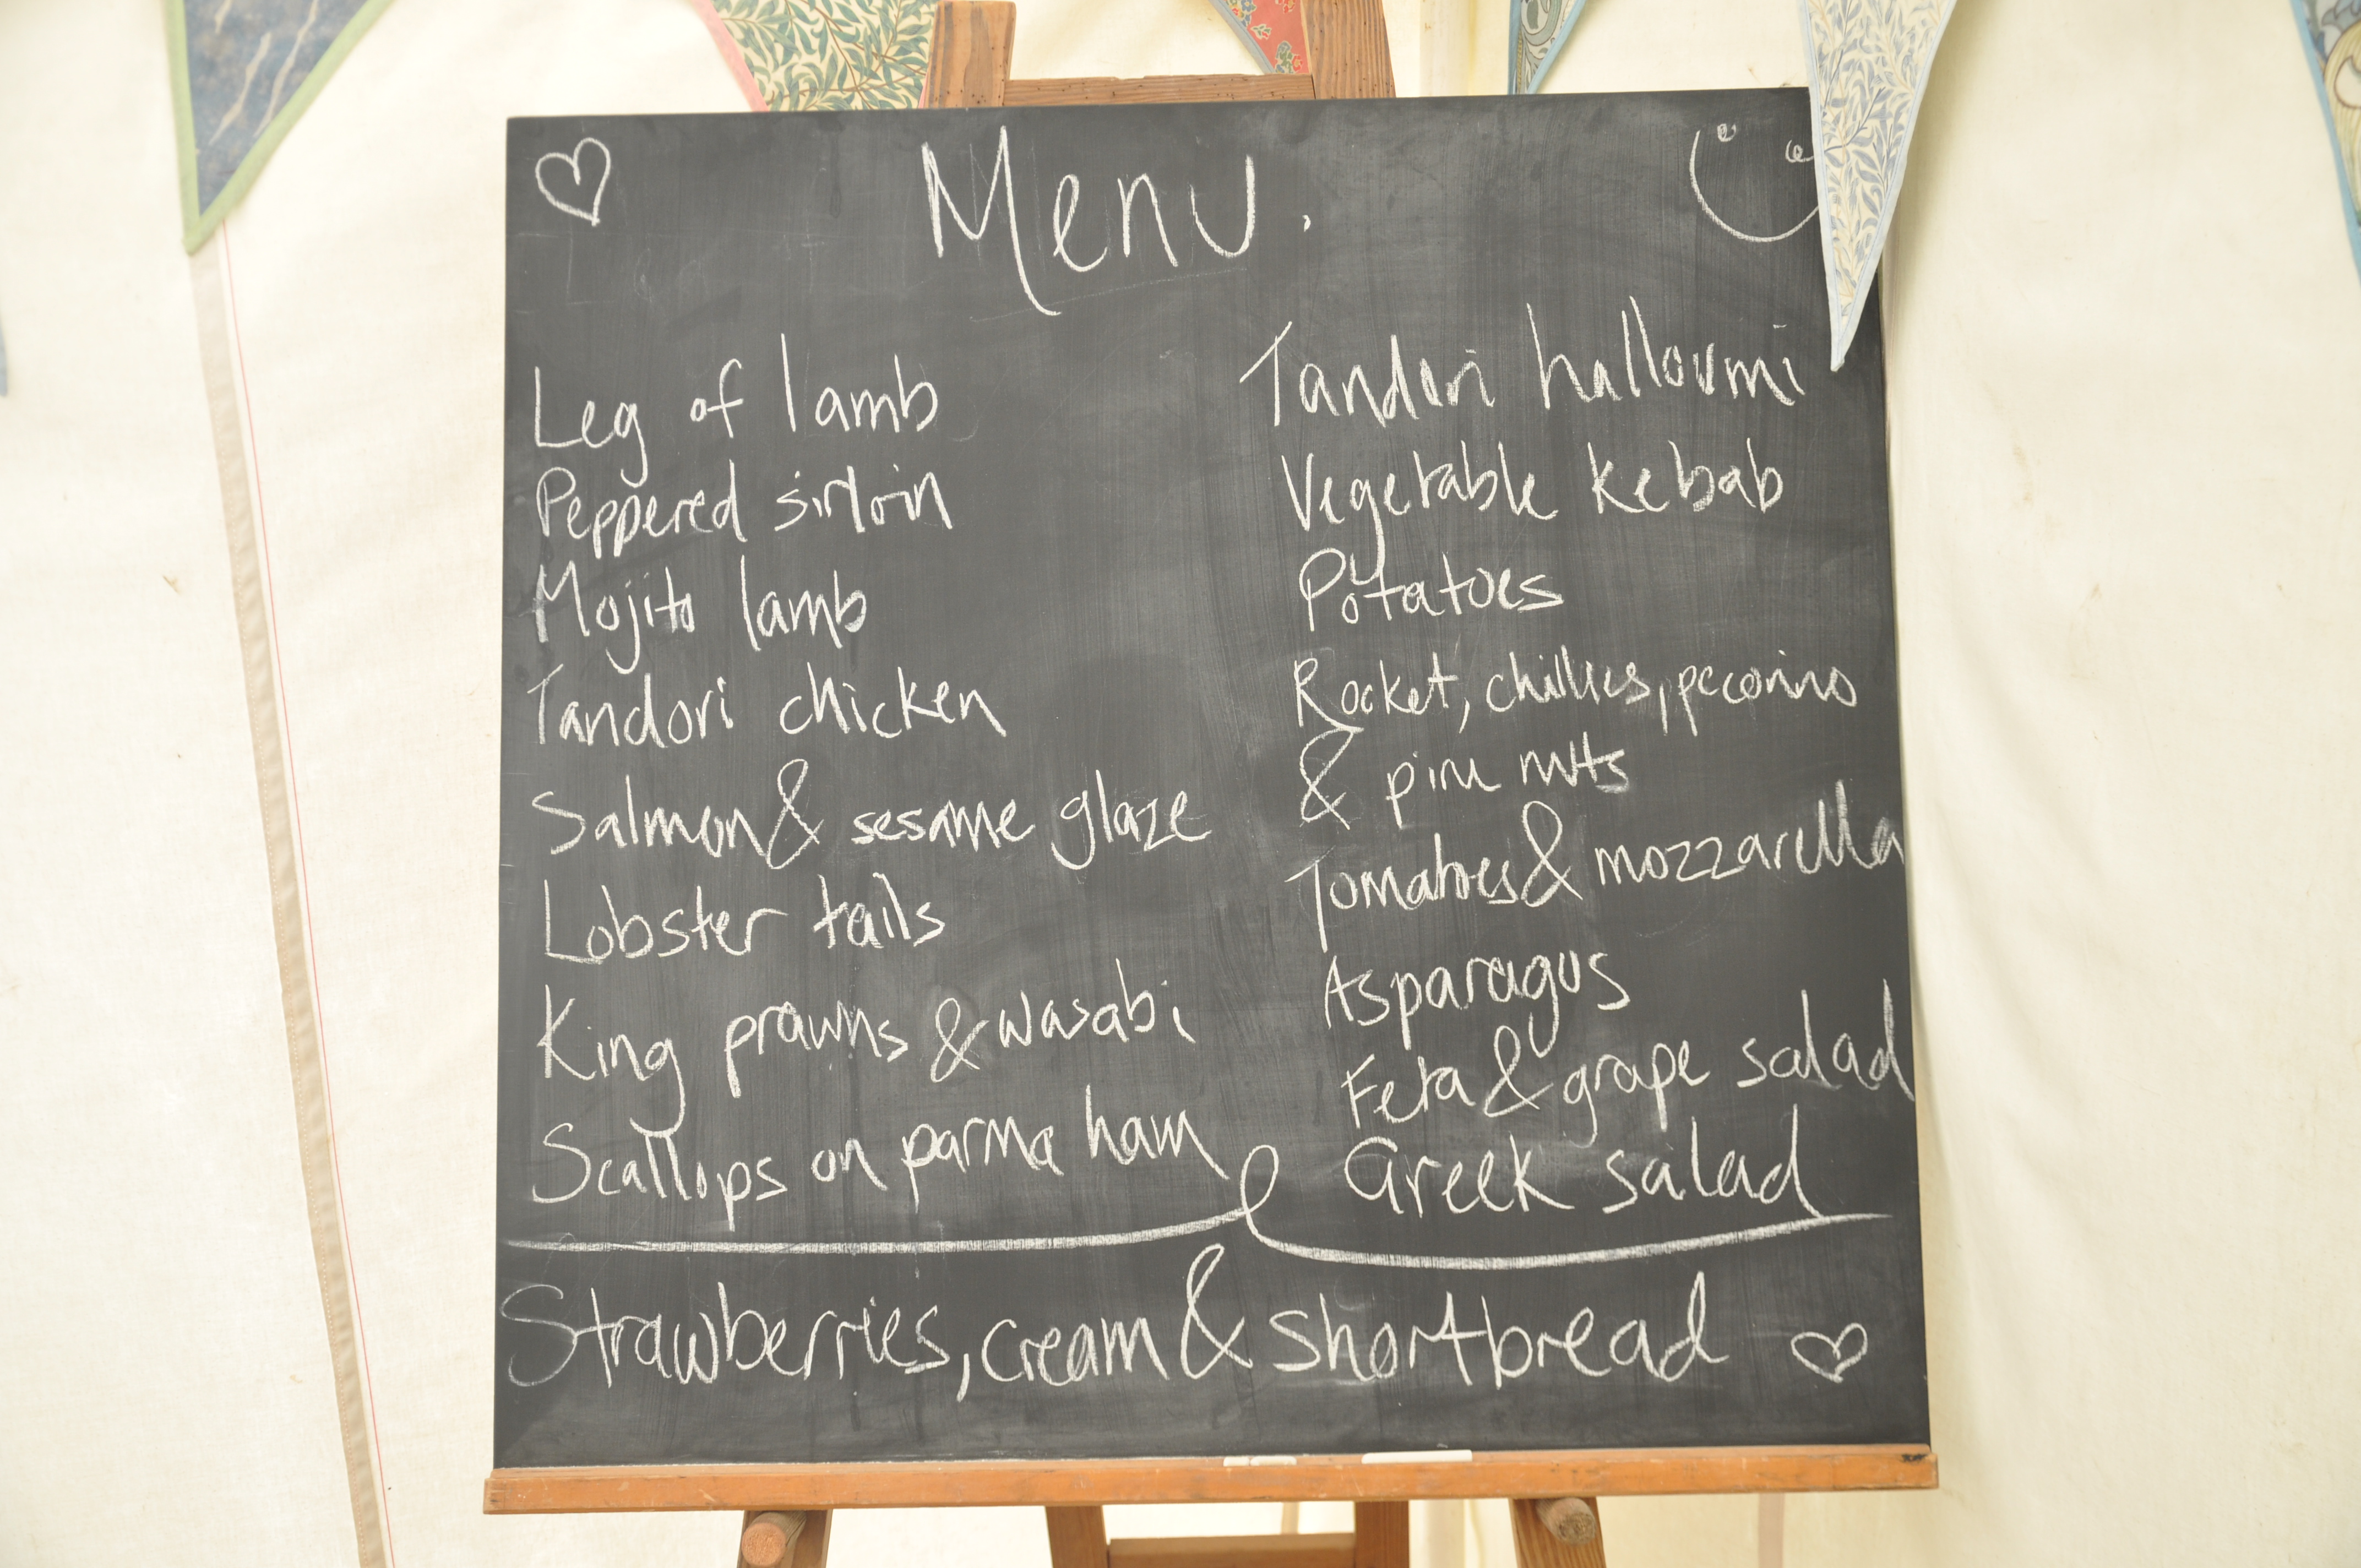 Menu.
Leg of lamb
Peppered sirloin
Mojito lamb
Tandori chicken
Salmon & sesame glaze
Lobster tails
King prawns & wasabi
Scallops on parma ham
Tandori halloumi
Vegetable kebab
Potatoes
Rocket, chillies, pecorino
& pine nuts
Tomatoes & mozzarella
Asparagus
Feta & grape salad
Greek salad
Strawberries, cream & shortbread